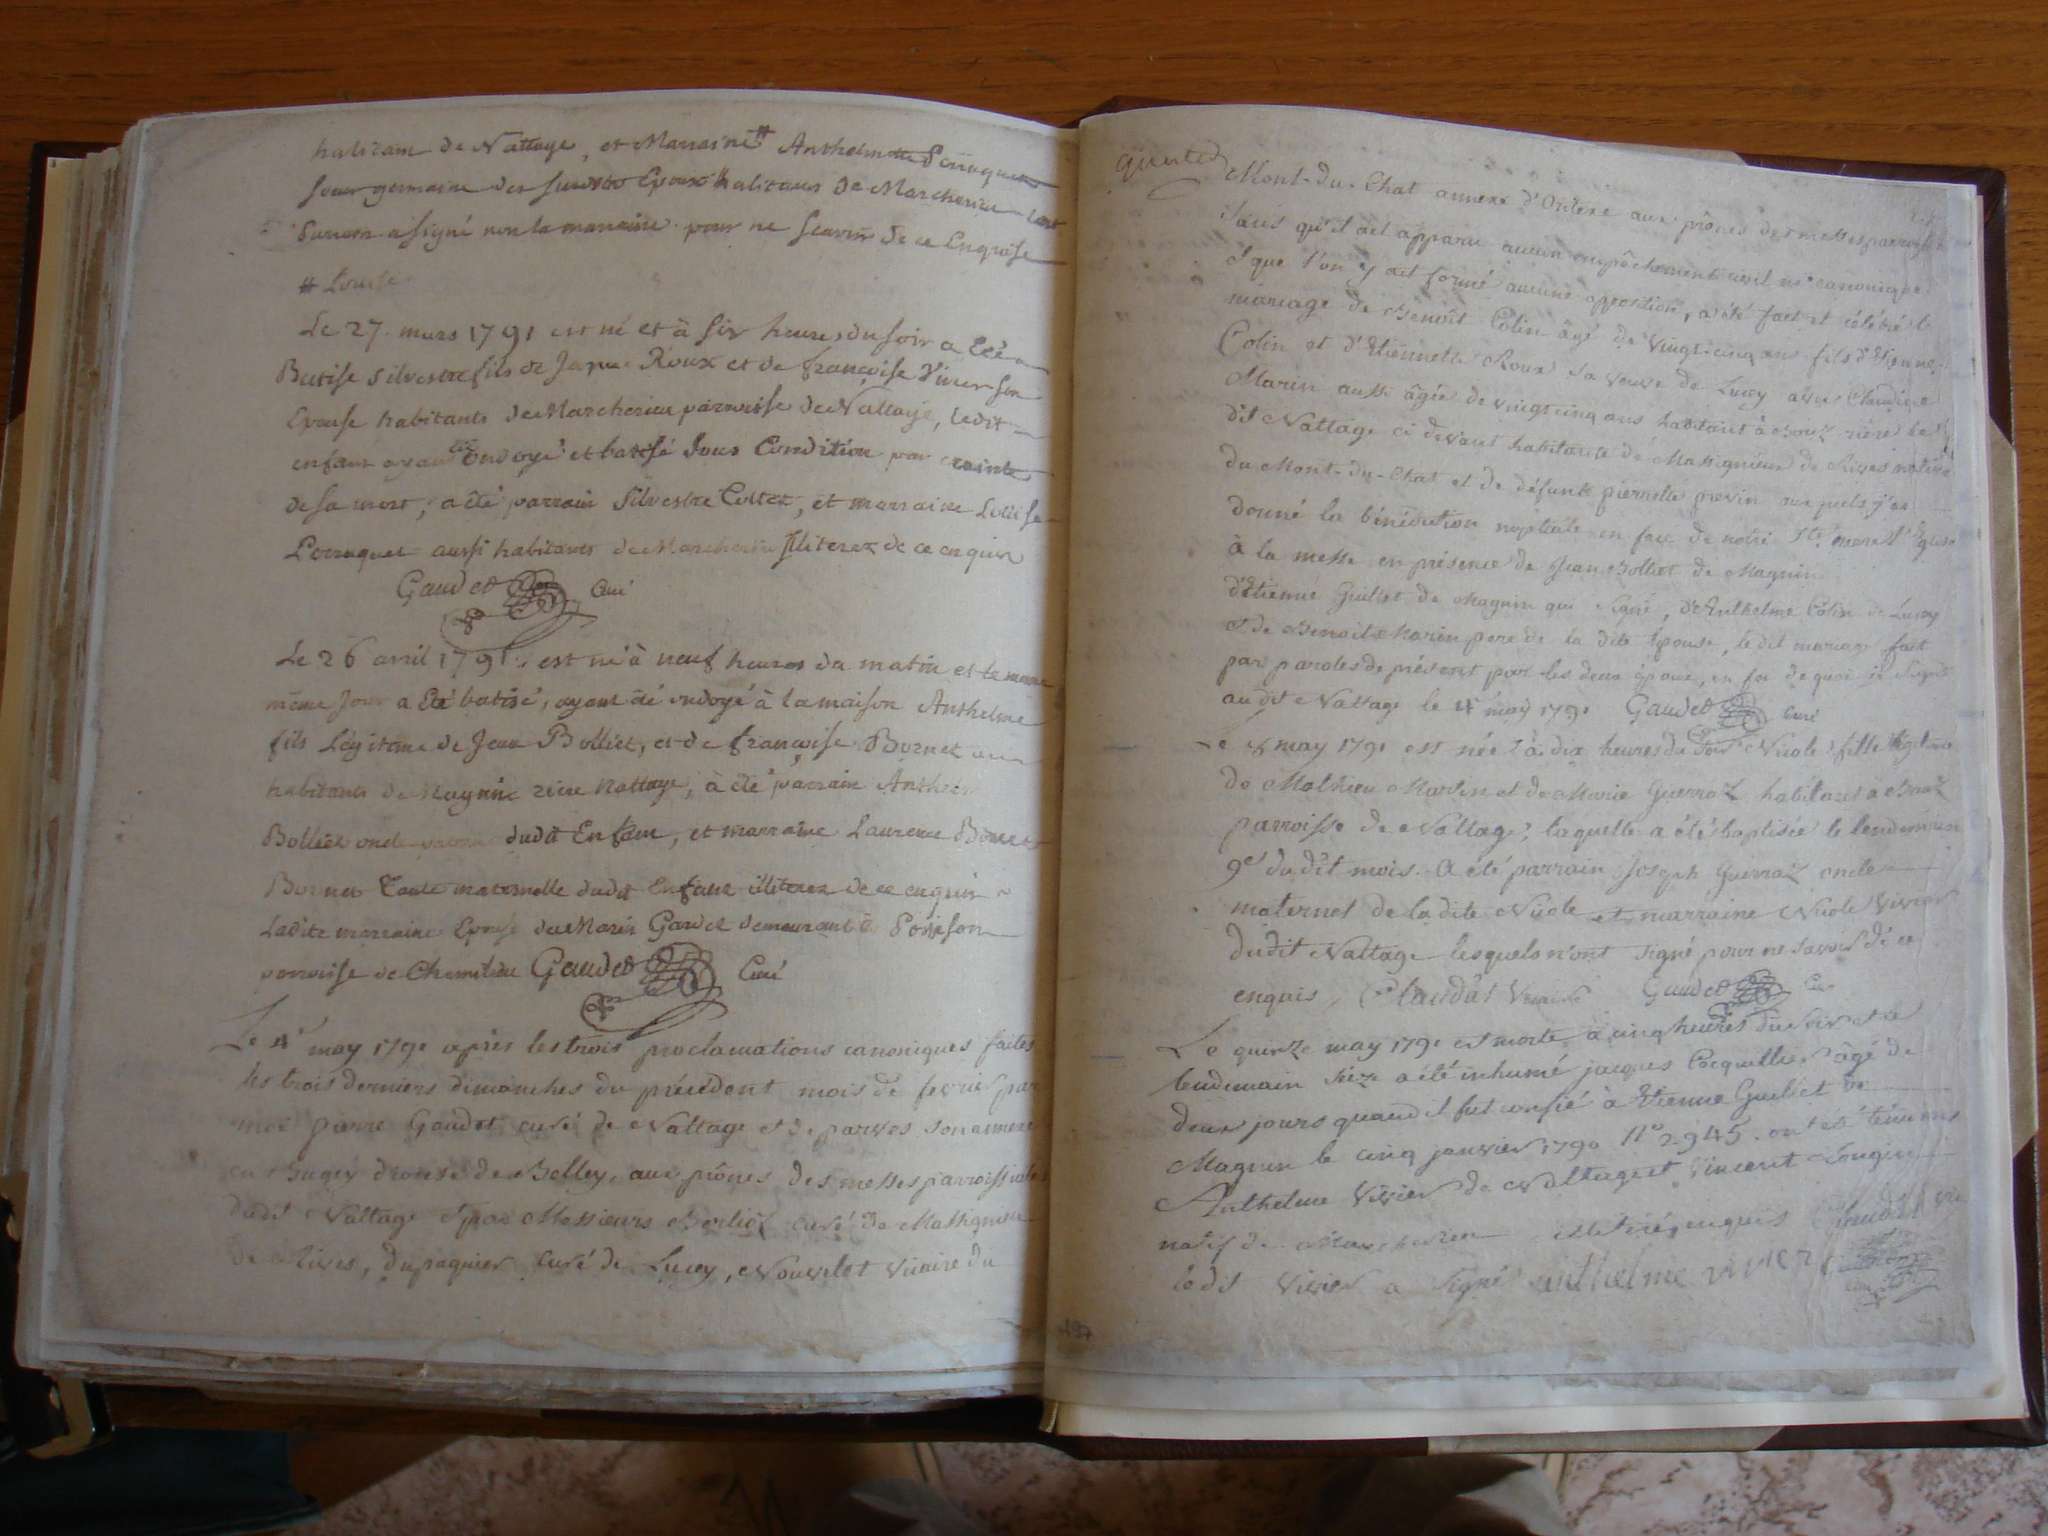 habitans de Nattage, et Marraine # Anthelmette Perruquet
soeur germaine des susdits Epoux habitans de Marcherieu
Parrain a signé non la marraine pour ne scavoir de ce Enquise
# Louise
Le 27 mars 1791 est né et à six heures du soir a été
Batise silvestre fils de Jaque Roux et de françoise Vivier son
Epouse habitants de Marcherieu parroisse de Nattage, ledit
enfant ayant été ondoyé et batisé sous Condition par crainte
de sa mort, a été parrain Silvestre Cottet, et marraine Louise
Perruquet aussi habitants de Marcherieu illiterez de ce enquis
Gaudet Curé
Le 26 avril 1791 est né à neuf heures du matin et le meme
même jour a Eté batisé, ayant été ondoyé à la maison Anthelme
fils Légitime de Jean Bolliet, et de françoise Burnet
habitants de Magnin riere Nattage, à été parrain Anthelme
Bolliet oncle dudit Enfant, et marraine Laurence
Burnet tante maternelle dudit Enfant illiterez de ce enquis
Ladite marraine Epouse de Marin Gaudet demeurant à
parroisse de Chemilieu Gaudet Curé
Le 4 may 1791 après les trois proclamations canoniques faites
les trois derniers dimanches du précédent mois de fevrier par
moi pierre Gaudet curé de Nattage et de parves son annexe
en Bugey diocese de Belley, aux prônes des messes parroissiales
dudit Nattage et par Messieurs curé de Massignieu
de Rives, dupaquier curé de Lucey, Nouvelet vicaire du
Mont-du-Chat annexe d'Ontex aux prônes des messes parroissiales
sans qu'il ait apparu aucun empêchement civil ni canonique
et que l'on y ait formé aucune opposition, a été fait et célébré le
mariage de Benoît Colin âgé de vingt-cinq ans fils d'Etienne
Colin et d'Etiennette Roux sa veuve de Lucey avec Claudine
Marin aussi âgée de vingt cinq ans habitant à riere le
dit Nattage ci devant habitante de Massignieu de Rives native
du Mont-du-Chat et de défunte pierrette previn auxquels j'ai
donné la bénédiction nuptiale en face de notre Ste mere l'Eglise
à la messe en présence de Jean Bolliet de Magnin
d'Etienne Guillet de Magnin qui signe, d'Anthelme Colin de Lucey
et de Benoit Marin pere de la dite épouse, le dit mariage fait
par paroles de présent par les deux époux, en foi de quoi j'ai signé
audit Nattage le 4 may 1791 Gaudet Curé
Le 8 may 1791 est née à dix heures du soir Nicole fille légitime
de Mathieu Martin et de Marie Guerraz habitant à
parroisse de Nattage, laquelle a été baptisée le lendemain
9e du dit mois. A été parrain Joseph Guerraz oncle
maternel de la dite Nicole et marraine Nicole Vivier
dudit Nattage lesquels n'ont signé pour ne savoir de ce
enquis, Gaudet Curé
Le quinze may 1791 est morte à cinq heures du soir et le
lendemain seize a été inhumé jacques Cocquillier âgé de
deux jours quand il fut confié à Etienne Guillet de
Magnin le cinq janvier 1790 n° 2945. ont été témoins
Anthelme Vivier de Nattage et Vincent Longin
natif de Marcherieu illitéré enquis
le dit Vivier a signé anthelme vivier